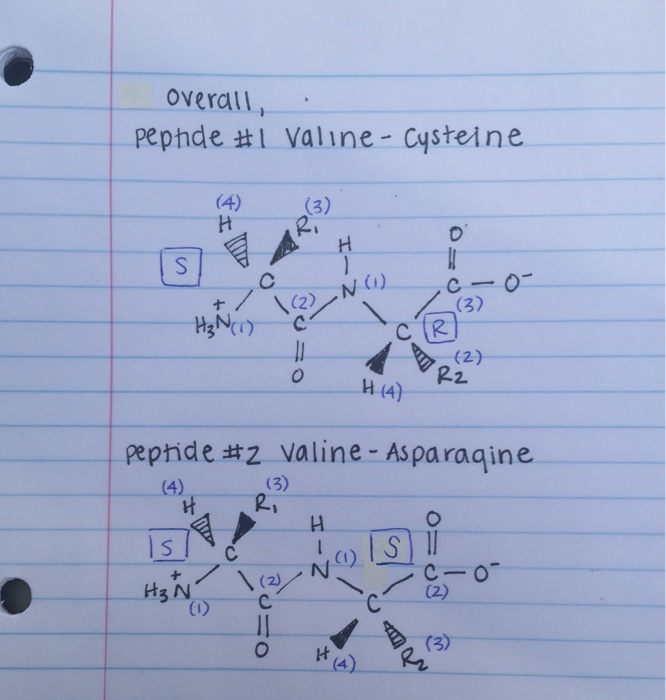 Overall,
Peptide #1 Valine - Cysteine
(4) (3)
H R1
H O
S
C N (1) C - O-
+ (2) (3)
H3N (1) C C R
(2)
O H (4) R2
Peptide #2 Valine - Asparagine
(4) (3)
H R1
H O
S S
C (1)
+ N C - O-
H3N (2) (2)
(1) C C
O H (4) R2 (3)